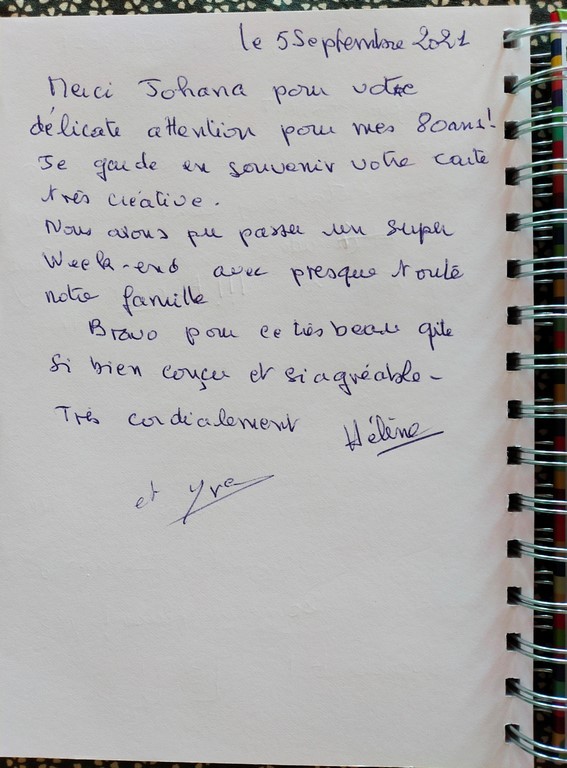 le 5 Septembre 2021
Merci Johana pour votre
délicate attention pour mes 80ans!
Je garde en souvenir votre carte
très créative.
Nous avons pu passer un super
Week-end avec presque toute
notre famille
Bravo pour ce très beau gîte
si bien conçu et si agréable-
Très cordialement Hélène
et